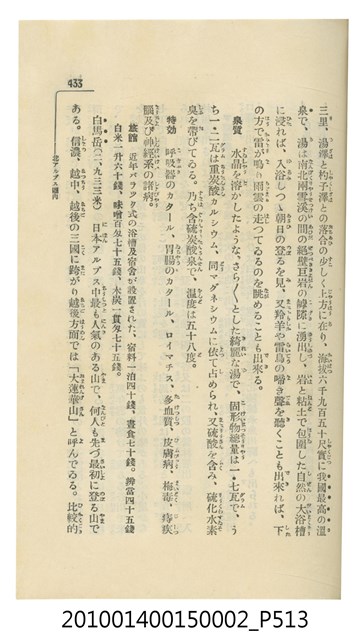 433
北アルプス圏内
三里、湯澤と杓子澤との落合の少しく上方に在り、海拔六千九百五十尺實に我國最高の溫
泉で、湯は南北兩雪溪の間の絕壁巨岩の罅隙に湧出し、岩と粘土で包圍した自然の大浴槽
に浸れば、入浴しつゝ朝日の登るを見、又羚羊や雷鳥の囁き聲を聽くことも出來れば、下
の方で雷が鳴り雨雲の走つてゐるのを眺めることも出來る。
泉質 水晶を溶かしたような、さら〱とした綺麗な湯で、固形物總量は一・七瓦で、う
ち一・二瓦は重炭酸カルシウム、同マグネシウムに依て占められ、又硫酸を含み、硫化水素
臭を帶びてゐる。乃ち含硫炭酸泉で、溫度は五十八度。
特効 呼吸器のカタール、胃腸のカタール、ロイマチス、多血質、皮膚病、梅毒、痔疾
腦及び神經系の諸病。
旅館 近年バラツク式の浴槽及宿舍が設置された、宿料一泊四十錢、晝食七十錢。辨當四十五錢
白米一升六十錢、味噌百匁七十五錢、木炭一貫匁七十五錢。
白馬岳(二、九三三米) 日本アルプス中最も人氣のある山で、何人も先づ最初に登る山で
ある。信濃、越中、越後の三國に跨がり越後方面では「大蓮華山」と呼んでゐる。比較的
201001400150002_P513